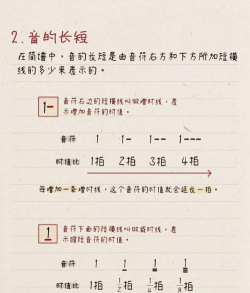 2.音的长短
在简谱中，音的长短是由音符右方和下方所加短横
线的多少来表示的。
1- 音符右边的短横线叫做增时线，表
示增加音符的时值。
音符 1 1- 1-- 1---
时值比 1拍 2拍 3拍 4拍
每增加一条增时线，这个音符的时值就会延长一拍。
1 音符下面的短横线叫做减时线，表
示缩短音符的时值。
音符 1 1 1 1
时值比 1拍 1/2拍 1/4拍 1/8拍